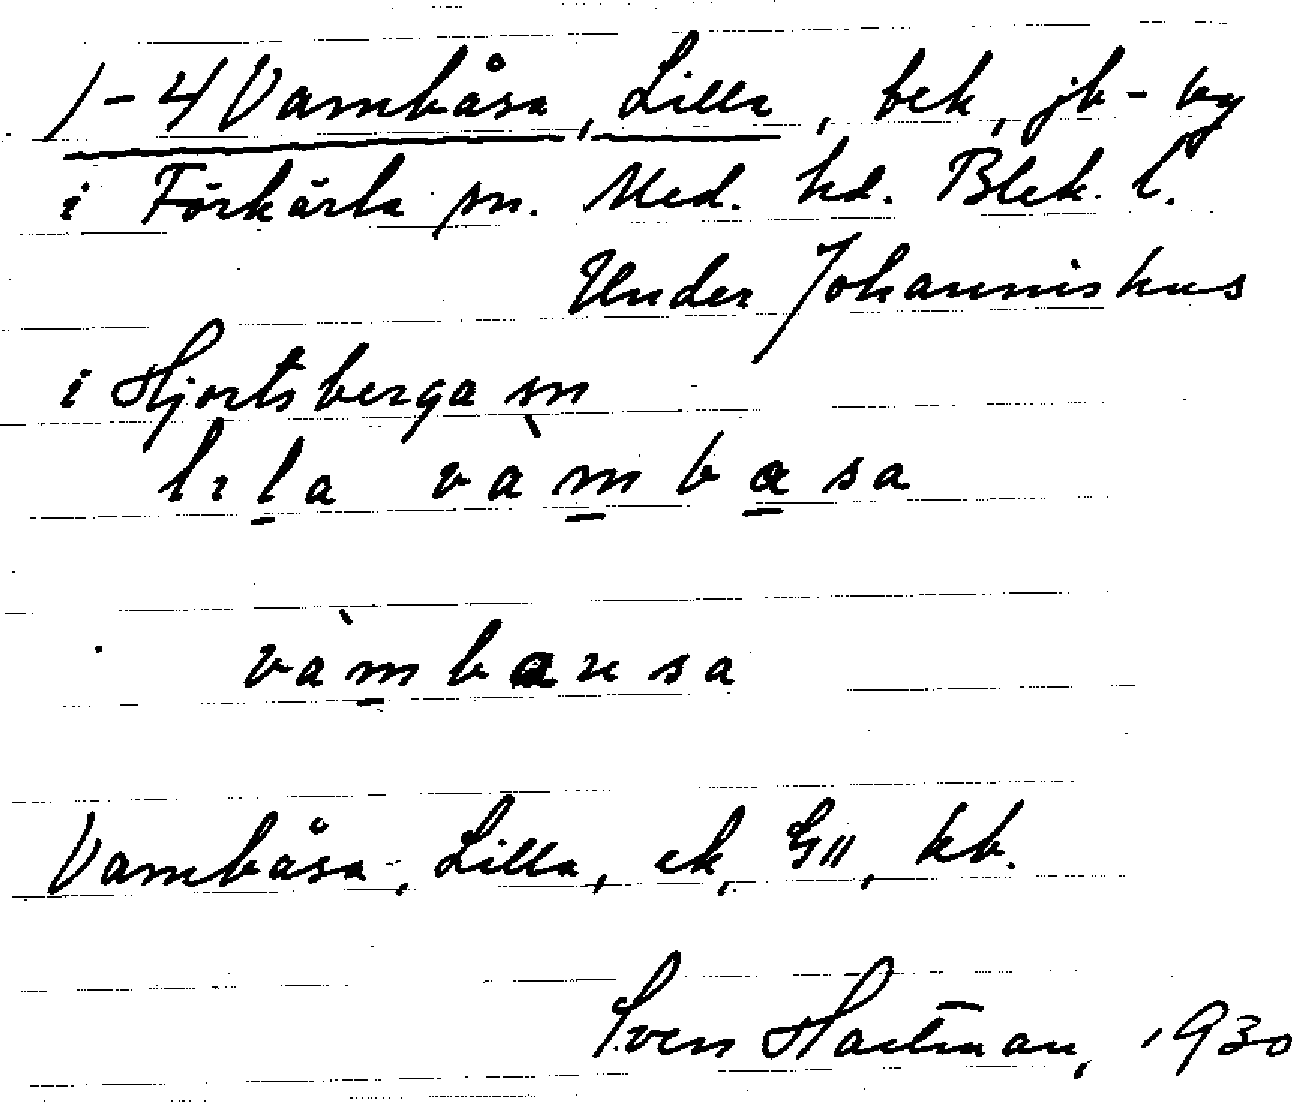 1-4 Vambåsa, Lilla, bek, jb-by
i Förkärla sn. Med. hd. Blek. l.
Under Johannishus
i Hjortsberga sn
lıla vàmbasa
vàmbausa
Vambåsa, Lilla, ek, GII, kb.
Sven Hartman, 1930